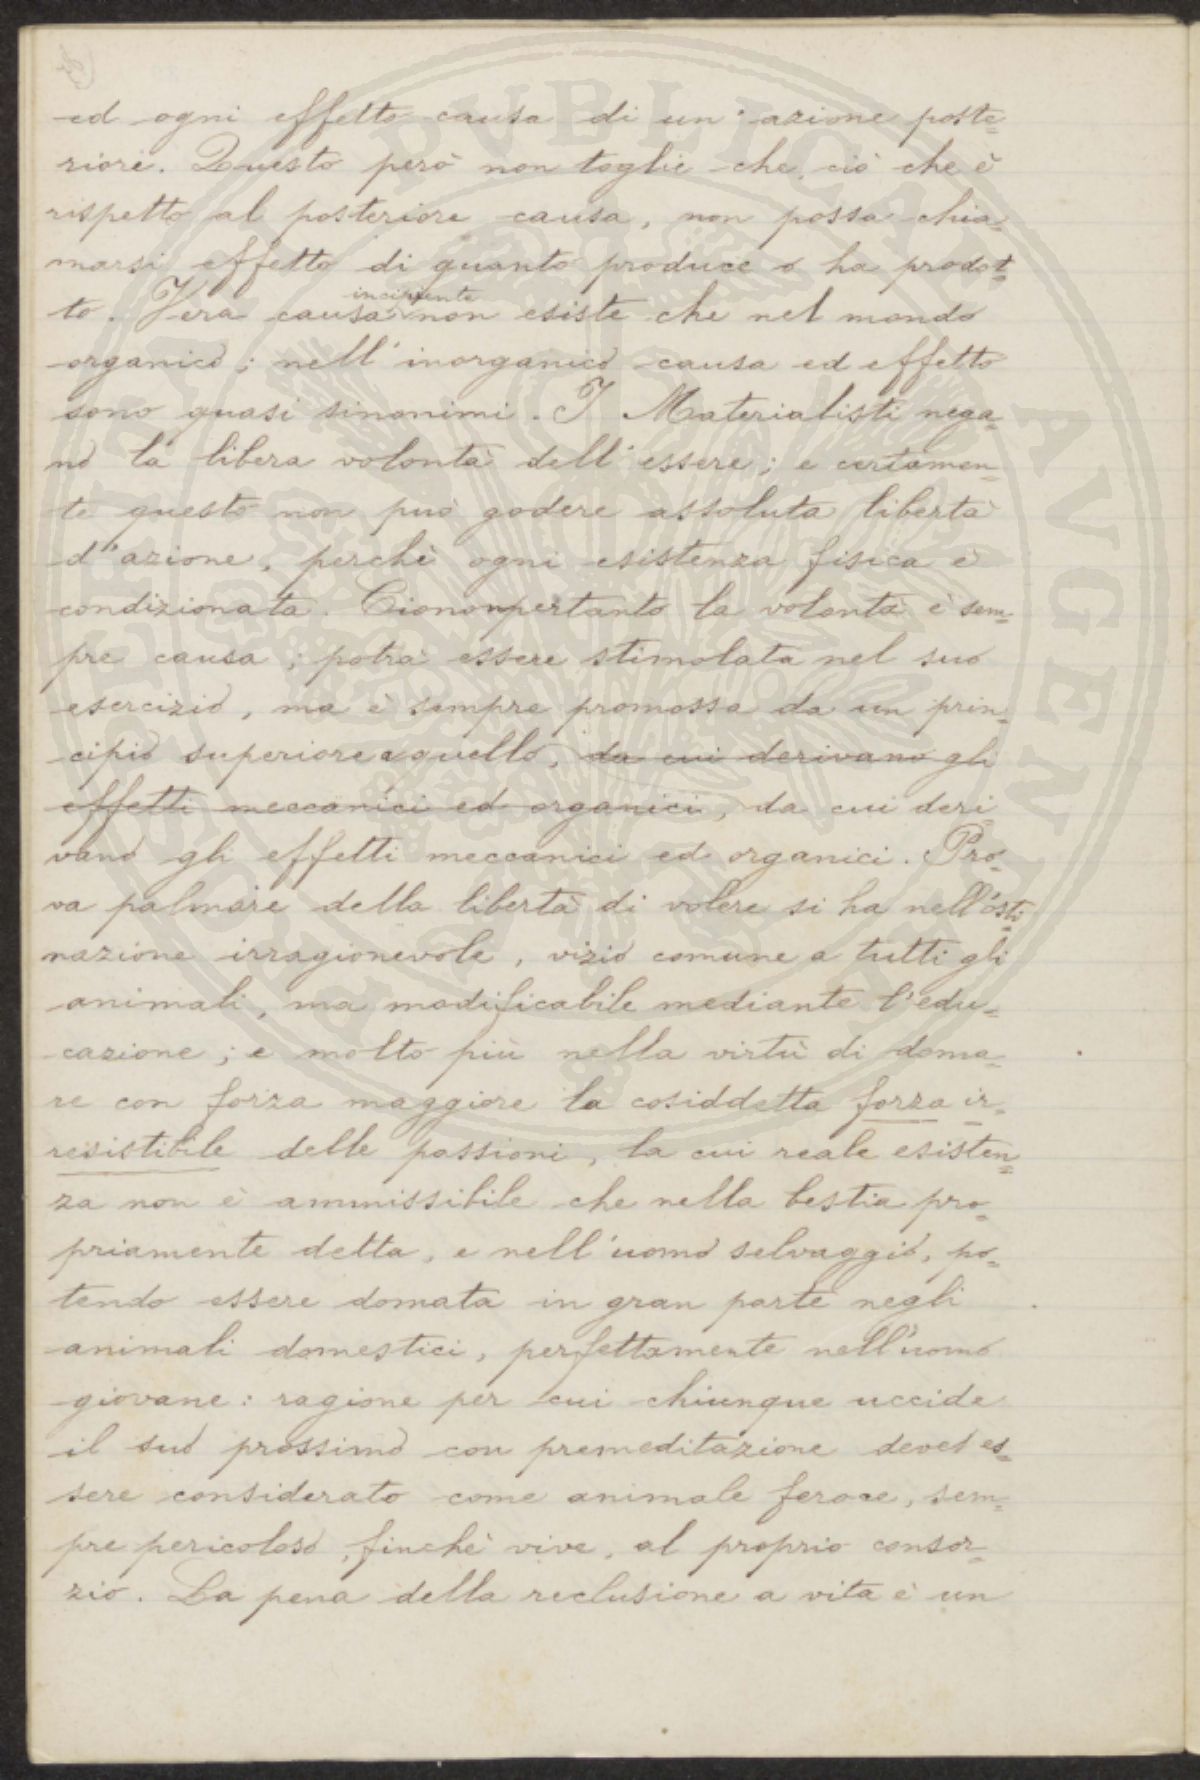 ed ogni effetto causa di un'azione poste=
riore. Questo però non toglie che, ciò che è
rispetto al posteriore causa, non possa chia=
marsi effetto di quanto produce o ha prodot=
to. Vera causa incipiente non esiste che nel mondo
organico; nell'inorganico causa ed effetto
sono quasi sinonimi. I Materialisti nega=
no la libera volontà dell'essere; e certamen=
te questo non può godere assoluta libertà
d'azione, perchè ogni esistenza fisica è
condizionata. Ciononpertanto la volontà è sem=
pre causa; potrà essere stimolata nel suo
esercizio, ma è sempre promossa da un prin=
cipio superiore a quello, da cui derivano gli
effetti meccanici ed organici, da cui deri=
vano gli effetti meccanici ed organici. Pro=
va palmare della libertà di volere si ha nell'osti=
nazione irragionevole, vizio comune a tutti gli
animali, ma modificabile mediante l'edu=
cazione; e molto più nella virtù di doma=
re con forza maggiore la cosiddetta forza ir=
resistibile delle passioni, la cui reale esisten=
za non è ammissibile che nella bestia pro=
priamente detta, e nell'uomo selvaggio, po=
tendo essere domata in gran parte negli
animali domestici, perfettamente nell'uomo
giovane: ragione per cui chiunque uccide
il suo prossimo con premeditazione deve es=
sere considerato come animale feroce, sem=
pre pericoloso, finchè vive, al proprio consor=
zio. La pena della reclusione a vita è un
PVBLICAE AVGENDAE